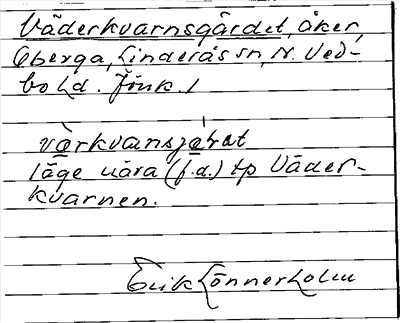 Väderkvarnsgärdet, åker,
Oberga, Linderås sn, N. Ved-
bo hd. Jönk. l
vä̀rkvansjæ̀ɾat
läge nära (f.d.) tp Väder-
kvarnen.
Erik Lönnerholm